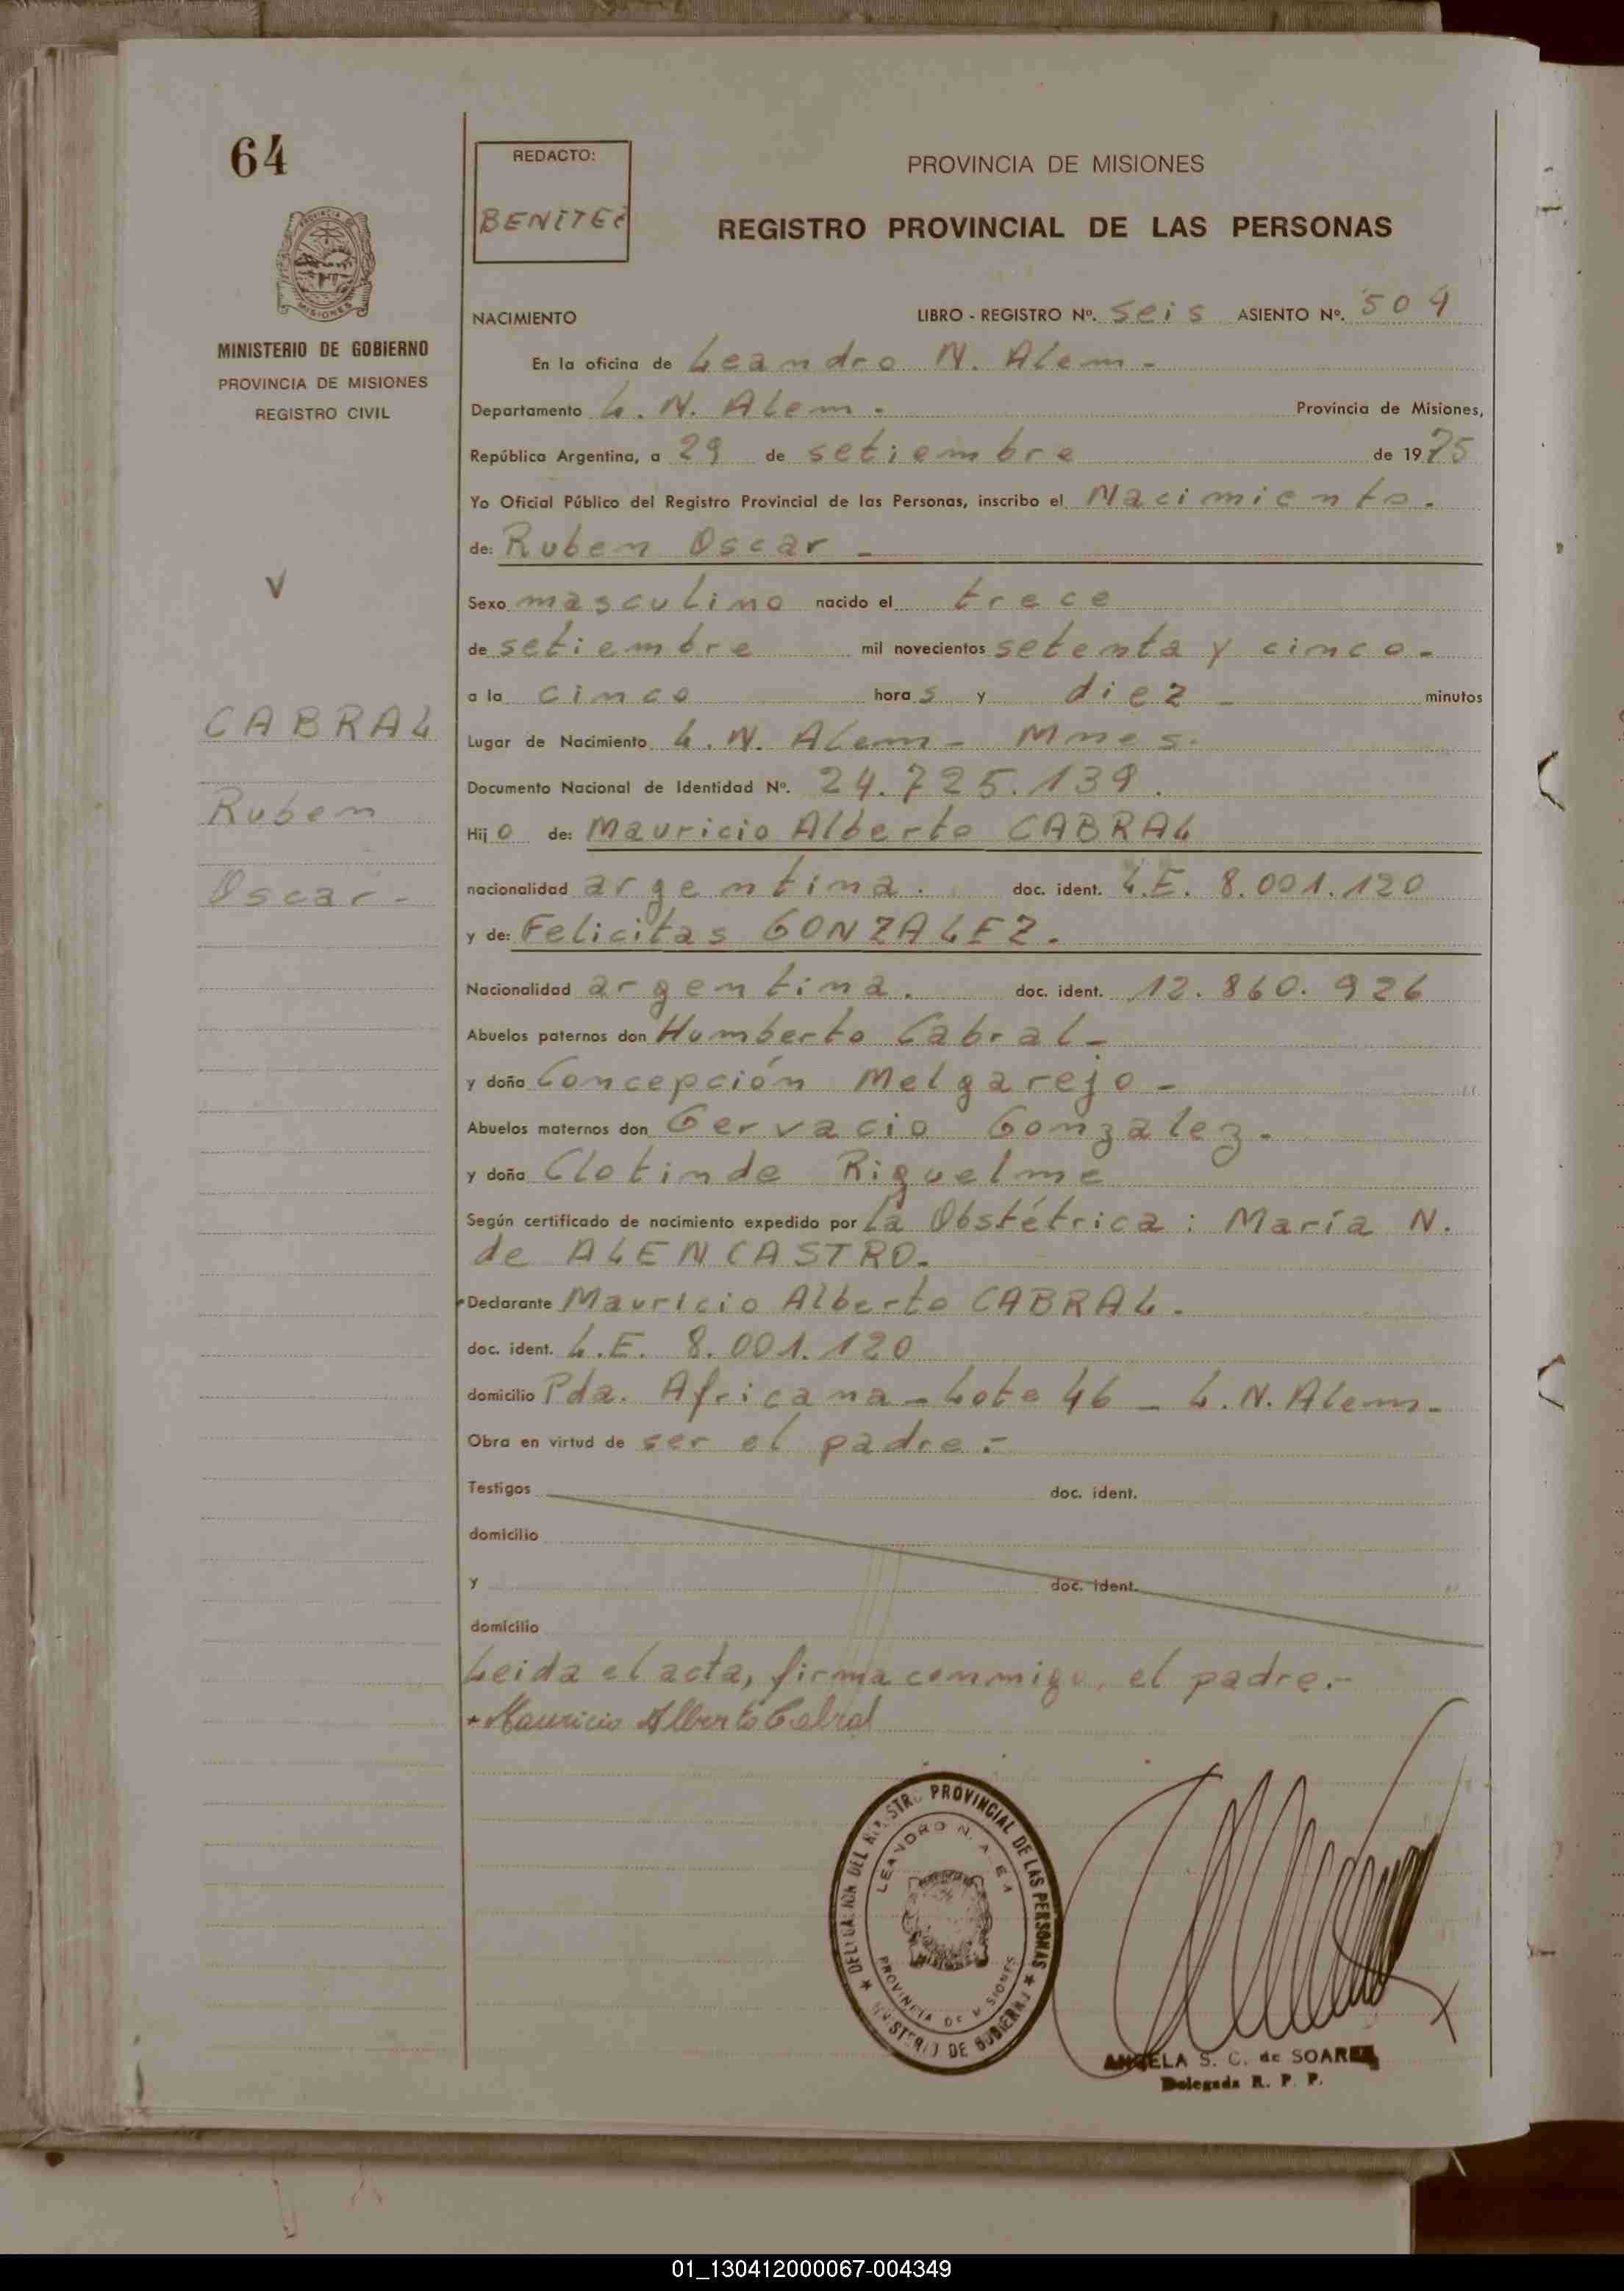 64
REDACTO:
BENITEZ
PROVINCIA DE MISIONES
REGISTRO PROVINCIAL DE LAS PERSONAS
PROVINCIA DE
MISIONES
MINISTERIO DE GOBIERNO
PROVINCIA DE MISIONES
REGISTRO CIVIL
V
CABRAL
Ruben
Oscar-
NACIMIENTO LIBRO - REGISTRO Nº. seis ASIENTO Nº. 509
En la oficina de Leandro N. Alem -
Departamento L. N. Alem. Provincia de Misiones,
República Argentina, a 29 de setiembre de 1975
Yo Oficial Público del Registro Provincial de las Personas, inscribo el Nacimiento.
de: Ruben Oscar -
Sexo masculino nacido el trece
de setiembre mil novecientos setenta y cinco-
a la cinco horas y diez - minutos
Lugar de Nacimiento L. N. Alem - Mnes.
Documento Nacional de Identidad Nº. 24.725.139.
Hijo de: Mauricio Alberto CABRAL
nacionalidad argentina. doc. ident. L.E. 8.001.120
y de: Felicitas GONZALEZ.
Nacionalidad argentina. doc. ident. 12.860.926
Abuelos paternos don Humberto Cabral-
y doña Concepción Melgarejo -
Abuelos maternos don Gervacio Gonzalez.
y doña Clotinde Riquelme
Según certificado de nacimiento expedido por la Obstétrica: María N.
de ALENCASTRO.
Declarante Mauricio Alberto CABRAL.
doc. ident. L.E. 8.001.120
domicilio Pda. Africana - Lote 46 - L.N. Alem-
Obra en virtud de ser el padre.-
Testigos doc. ident.
domicilio
y doc. ident.
domicilio
Leida el acta, firma conmigo, el padre.-
Mauricio Alberto Cabral
DELEGACION DEL REGISTRO PROVINCIAL DE LAS PERSONAS
MINISTERIO DE GOBIERNO
LEANDRO N. ALEM
PROVINCIA DE MISIONES
ANGELA S. C. de SOAREZ
Delegada R. P. P.
01_130412000067-004349